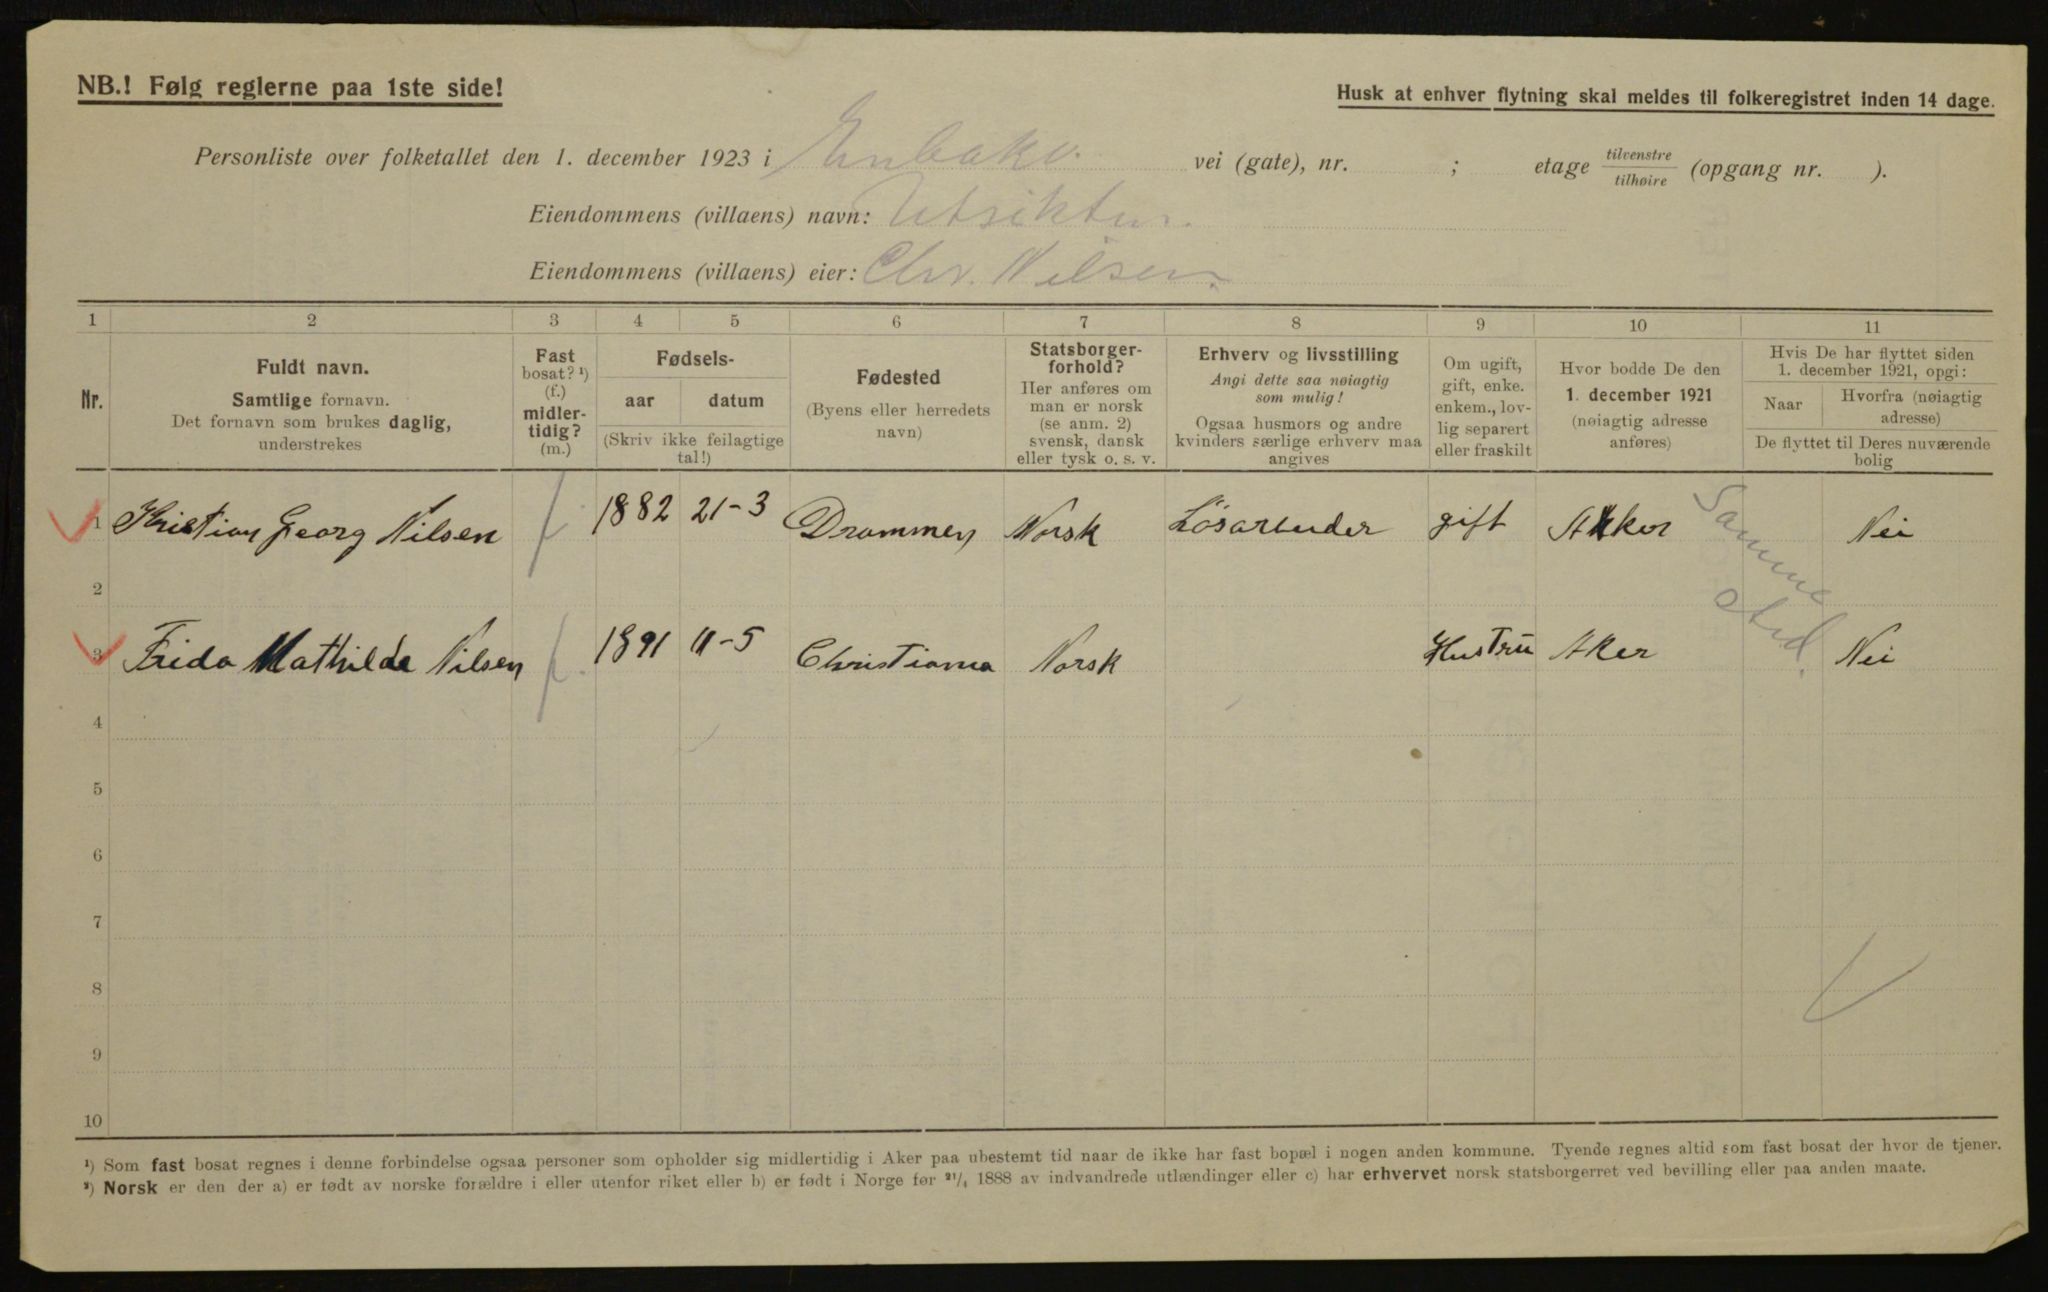 NB.! Følg reglerne paa 1ste side!
Husk at enhver flytning skal meldes til folkeregistret inden 14 dage.
Personliste over folketallet den 1. december 1923 i Enbakv. vei (gate), nr. ; etage tilvenstre/tilhøire (opgang nr. ).
Eiendommens (villaens) navn: Utsiktn.
Eiendommens (villaens) eier: Chr. Nilsen.
1 2 3 4 5 6 7 8 9 10 11
Nr.
Fuldt navn.
Samtlige fornavn.
Det fornavn som brukes daglig,
understrekes
Fast
bosat? ¹)
(f.)
midler-
tidig?
(m.)
Fødsels-
aar datum
(Skriv ikke feilagtige
tal!)
Fødested
(Byens eller herredets
navn)
Statsborger-
forhold?
Her anføres om
man er norsk
(se anm. 2)
svensk, dansk
eller tysk o. s. v.
Erhverv og livsstilling
Angi dette saa nøiagtig
som mulig!
Ogsaa husmors og andre
kvinders særlige erhverv maa
angives
Om ugift,
gift, enke.
enkem., lov-
lig separert
eller fraskilt
Hvor bodde De den
1. december 1921
(nøiagtig adresse
anføres)
Hvis De har flyttet siden
1. december 1921, opgi:
Naar
Hvorfra (nøiagtig
adresse)
De flyttet til Deres nuværende
bolig
1 Kristian Georg Nilsen f 1882 21-3 Drammen Norsk Lösarbeider gift Akker Nei
Samme
sted.
2
3 Frida Mathilde Nilsen f. 1891 11-5 Christiania Norsk Hustru Aker Nei
4
5
6
7
8
9
10
¹) Som fast bosat regnes i denne forbindelse ogsaa personer som opholder sig midlertidig i Aker paa ubestemt tid naar de ikke har fast bopæl i nogen anden kommune. Tyende regnes altid som fast bosat der hvor de tjener.
²) Norsk er den der a) er født av norske forældre i eller utenfor riket eller b) er født i Norge før ²¹/₄ 1888 av indvandrede utlændinger eller c) har erhvervet norsk statsborgerret ved bevilling eller paa anden maate.